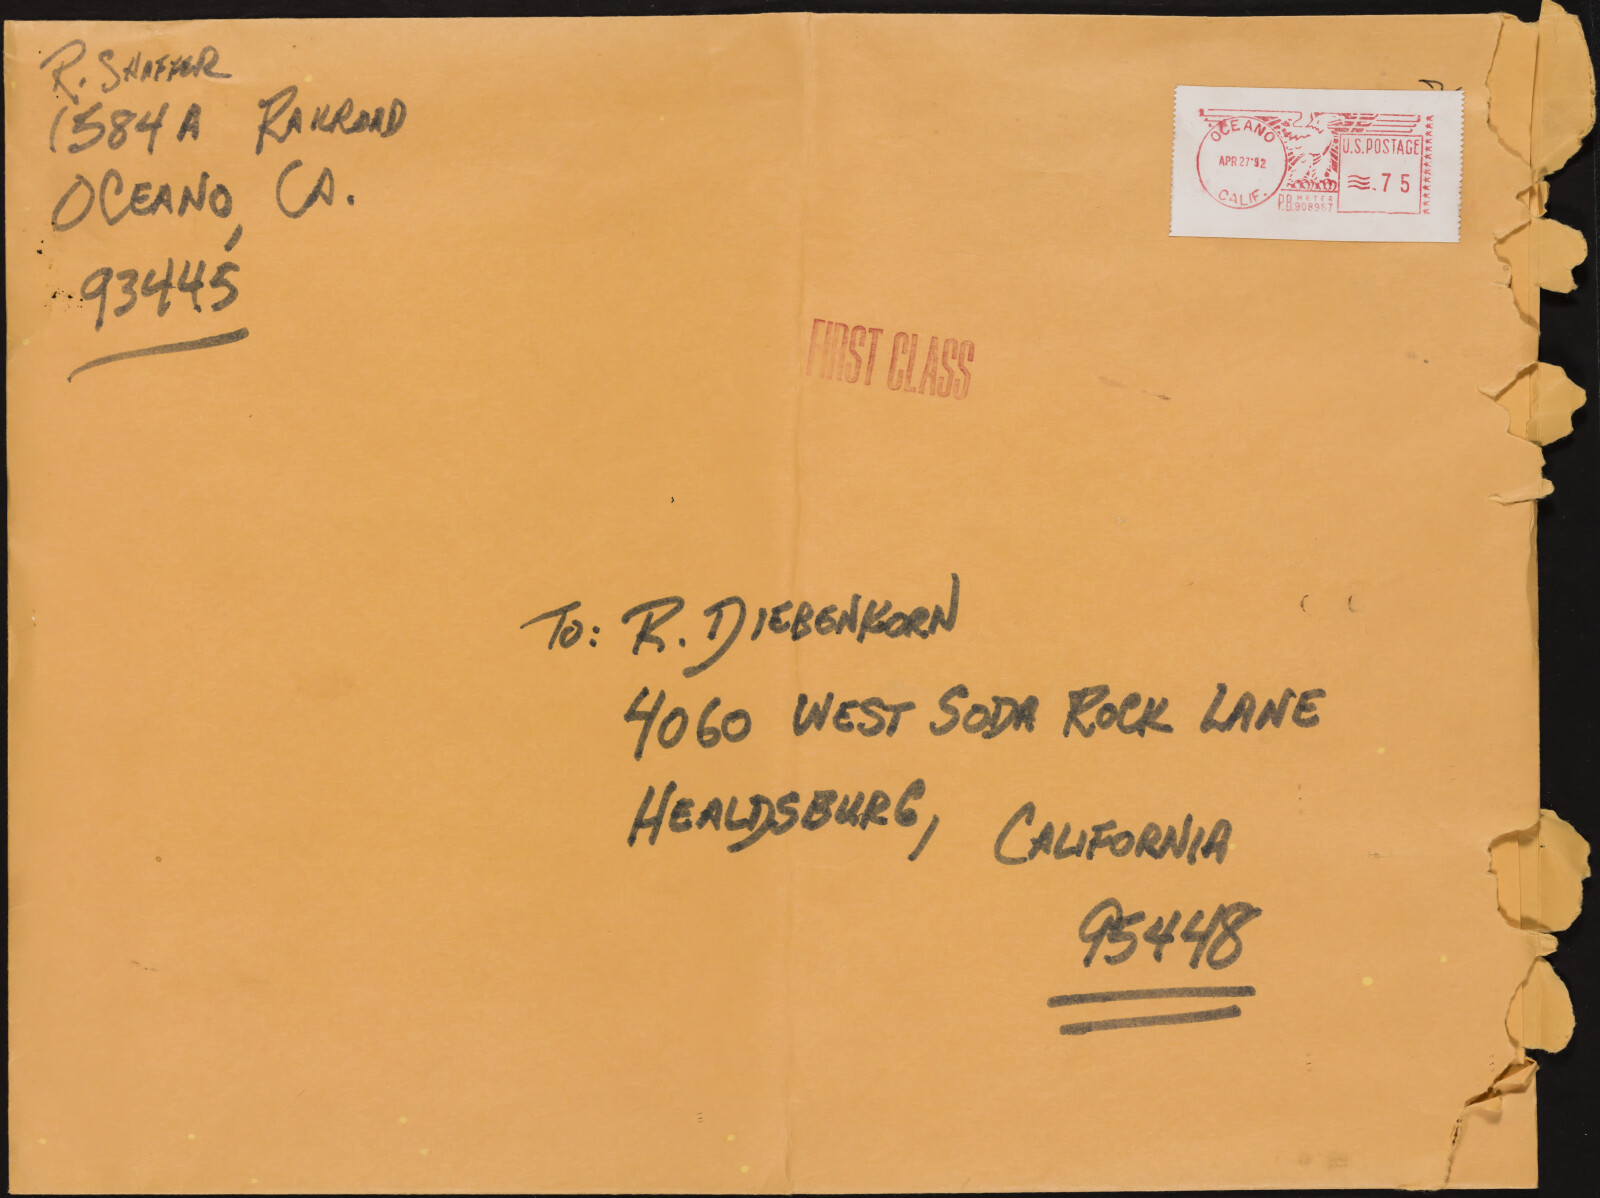 R. SHAFFER
1584 A RAILROAD
OCEANO, CA.
93445
OCEANO
APR 27 '92
CALIF.
U.S. POSTAGE
.75
P.B. METER
908967
FIRST CLASS
TO: R. DIEBENKORN
4060 WEST SODA ROCK LANE
HEALDSBURG, CALIFORNIA
95448